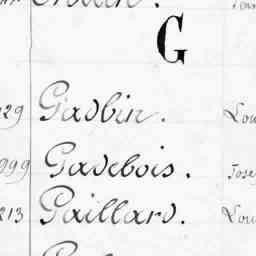 G
29 Gadbin. Lou
999 Gadebois. Jose
213 Gaillard. Lou